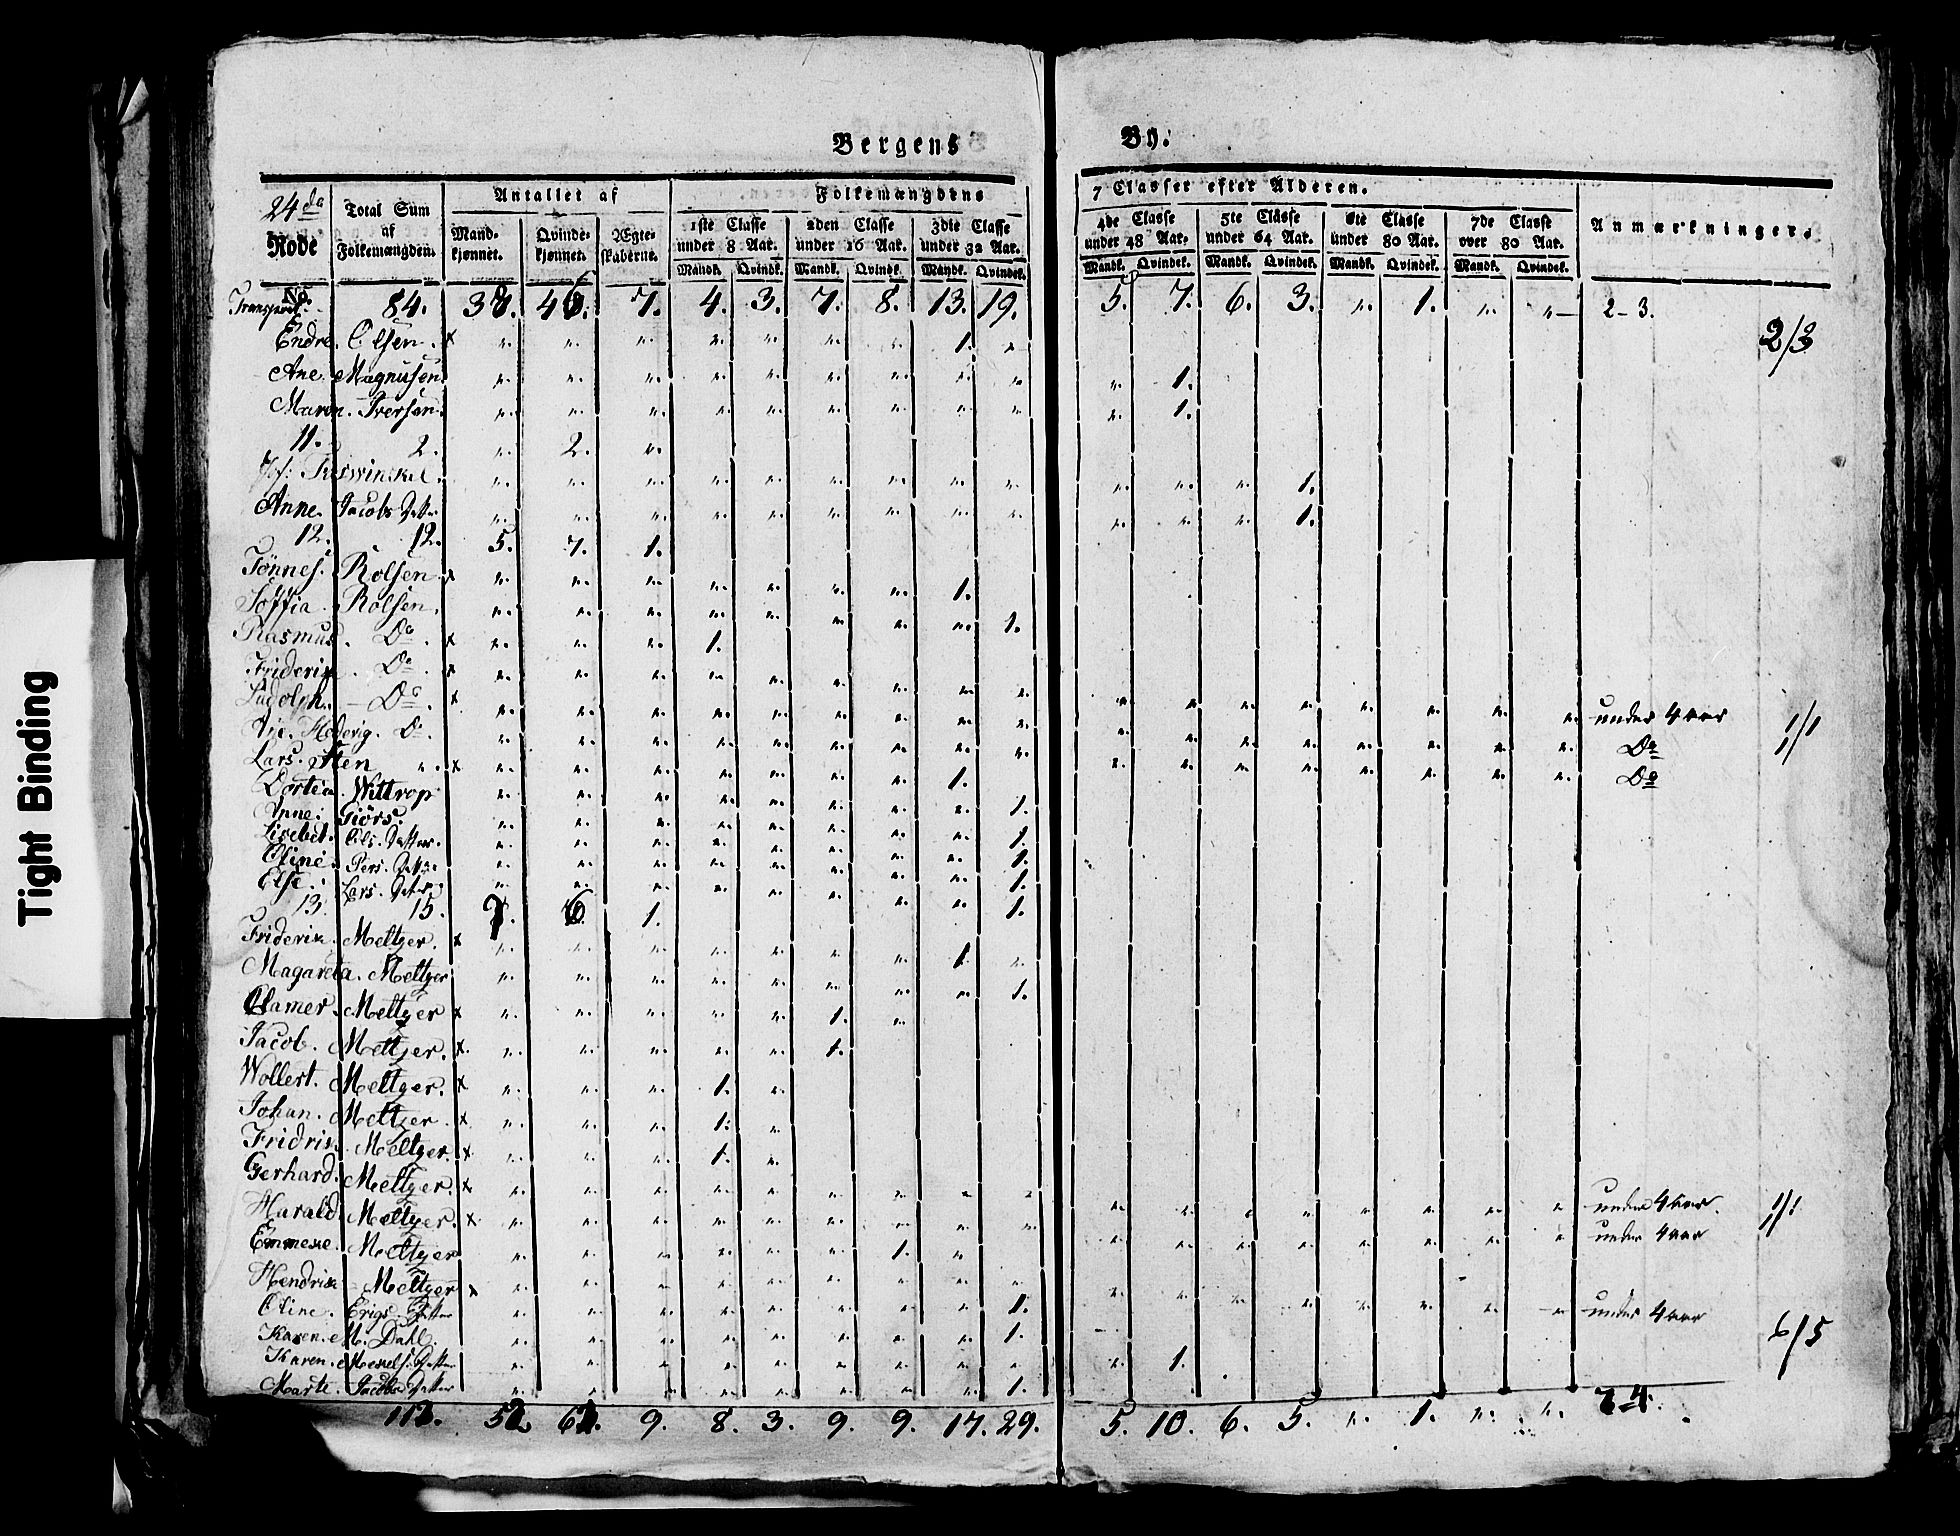 Tight Binding
Bergens By.
24de Rode
Total Sum af Folkemængden.
Antallet af
Mandkjønnet.
Qvindekjønnet.
Ægteskaberne.
Folkemængdens 7 Classer efter Alderen.
1ste Classe under 8 Aar.
2den Classe under 16 Aar.
3die Classe under 32 Aar.
4de Classe under 48 Aar.
5te Classe under 64 Aar.
6te Classe under 80 Aar.
7de Classe over 80 Aar.
Anmærkninger.
Mandk. Qvindk. Mandk. Qvindk. Mandk. Qvindek. Mandk. Qvindek. Mandk. Qvindek. Mandk. Qvindek. Mandk. Qvindek.
No.
Transport. 84. 38. 46. 7. 4. 3. 7. 8. 13. 19. 5. 7. 6. 3. " 1. " " 2-3.
Endre Olsen. x " " " " " " " 1. " 2/3
Ane Magnusen " " " " " " " " " " 1.
Maren Iversen. " " " " " " " " " " 1.
11. 2. " 2. "
" " " " " " " " " " " " 1.
Anne Jacobs Datter " " " " " " " " " " " " 1.
12. 12. 5. 7. 1.
Tønnes. Rolsen x " " " " " " " 1.
Soffia. Rolsen. " " " " " " " " 1.
Rasmus. Do. x " " " 1.
Friderik. Do. x " " " " " " " " " " " " " " " " " under 4 aar 1/1
Ludolph. Do. x " " " " " " " " " " " " " " " " " Do
Hedevig. Do. " " " " " " " " " " " " " " " " " Do
Lars. Sten " x " " " " " " " 1.
Dortea. Wittrop " " " " " " " " 1.
Anne. Giörs. " " " " " " " " 1.
Lisebet. Ols. Datter. " " " " " " " " 1.
Oline. Pers. Datter " " " " " " " " 1.
Else. Lars. Datter " " " " " " " " 1.
13. 15. 9. 6. 1.
Friderik. Meltzer. x " " " " " " " 1. "
Magareta. Meltzer " " " " " " " " 1.
Clamer. Meltzer x " " " " " 1. "
Jacob. Meltzer. x " " " " " 1.
Wollert. Meltzer. x " " " 1. "
Johan. Meltzer. x " " " 1. "
Fridrik. Meltzer. x " " " 1. "
Gerhard. Meltzer. x " " " " " " " " " " " " " " " " " under 4 aar. 1/1
Harald. Meltzer. x " " " " " " " " " " " " " " " " " under 4 aar
Emmeke. Meltzer " " " " " " 1. "
Hendrik Meltzer x " " " " " " " " " " " " " " " " " under 4 aar
Oline. Erigs Datter " " " " " " " " 1. 6/5
Karen. M. Dahl. " " " " " " " " 1.
Karen. Mekels. Datter " " " " " " " " " " 1.
Marte. Jacobs Datter " " " " " " " " 1.
113. 52. 61. 9. 8. 3. 9. 9. 17. 29. 5. 10. 6. 5. " 1. " " 7-4.